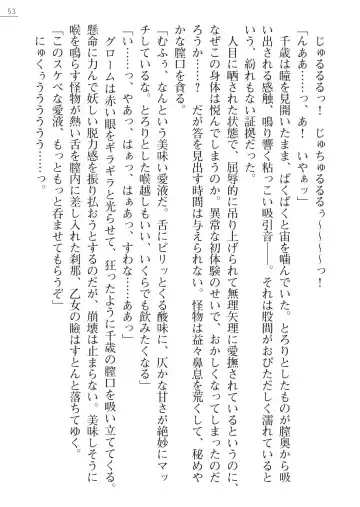 53
じゅるるるっ！　じゅちゅるるるぅ〜〜〜〜っ！
「んああ……っ、あ！　いやぁッ」
千歳は瞳を見開いたまま、ぱくぱくと宙を噛んでいた。とろりとしたものが膣奥から吸
い出される感触、鳴り響く粘っこい吸引音――。それは股間がおびただしく濡れていると
いう、紛れもない証拠だった。
人目に晒された状態で、屈辱的に吊り上げられて無理矢理に愛撫されているというのに、
なぜこの身体は悦んでしまうのか。異常な初体験のせいで、おかしくなってしまったのだ
ろうか……？　だが答を見出す時間は与えられない。怪物は益々鼻息を荒くして、秘めや
かな膣口を貪る。
「むふぅ、なんという美味い愛液だ。舌にピリッとくる酸味に、仄かな甘さが絶妙にマッ
チしているな。とろりとした喉越しもいい、いくらでも飲みたくなる」
「い……っ、やあっ、はぁっ、はぁあっ、すわな……ああっ」
グロームは赤い眼をギラギラと光らせて、狂ったように千歳の膣口を吸い立ててくる。
懸命に力んで妖しい脱力感を振り払おうとするのだが、崩壊は止まらない。美味しそうに
喉を鳴らす怪物が熱い舌を膣内に差し入れた刹那、乙女の瞼はすとんと落ちてゆく。
「このスケベな愛液、もっともっと呑ませてもらうぞ」
にゅくぅうううううう……っ。